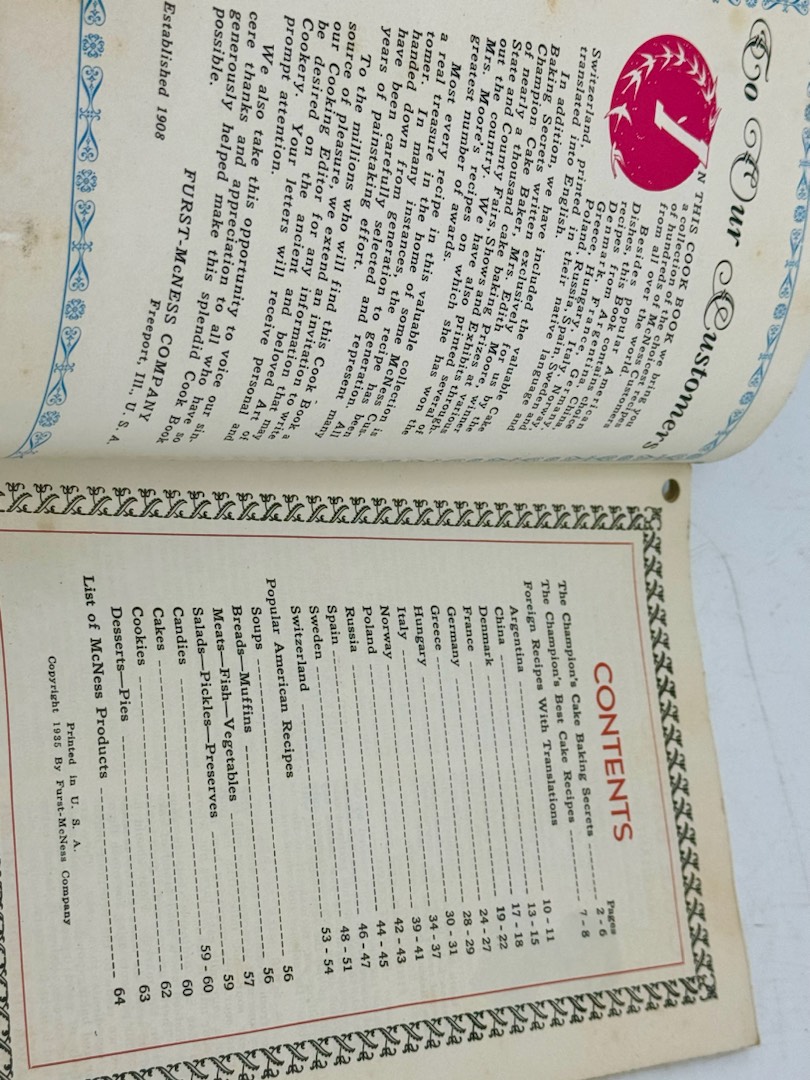 To Our Customers
IN THIS COOK BOOK we bring you
a collection of the choicest recipes
of hundreds of McNess Customers
from all over the world.
Besides the popular American
Dishes, this Book contains choice
recipes from Argentina, China,
Denmark, France, Germany,
Greece, Hungary, Italy, Norway,
Poland, Russia, Spain, Sweden and
Switzerland, printed in their native language and
translated into English.
In addition, we have included the valuable Cake
Baking Secrets written exclusively for us by
Champion Cake Baker, Mrs. Edith Moore, winner
of nearly a thousand cake baking Prizes at various
State and County Fairs, Shows and Exhibits through-
out the country. We have also printed several of
Mrs. Moore's recipes on which she has won the
greatest number of awards.
Most every recipe in this valuable collection is
a real treasure in the home of some McNess Cus-
tomer. In many instances, the recipe has been
handed down from generation to generation. All
have been carefully selected and represent many
years of painstaking effort.
To the millions who will find this Cook Book a
source of pleasure, we extend an invitation to write
our Cooking Editor for any information that may
be desired on the ancient and beloved Art of
Cookery. Your letters will receive personal and
prompt attention.
We also take this opportunity to voice our sin-
cere thanks and appreciation to all who have so
generously helped make this splendid Cook Book
possible.
FURST-McNESS COMPANY
Established 1908
Freeport, Ill., U. S. A.
CONTENTS
Pages
The Champion's Cake Baking Secrets 2 - 6
The Champion's Best Cake Recipes 7 - 8
Foreign Recipes With Translations
Argentina 10 - 11
China 13 - 15
Denmark 17 - 18
France 19 - 22
Germany 24 - 27
Greece 28 - 29
Hungary 30 - 31
Italy 34 - 37
Norway 39 - 41
Poland 42 - 43
Russia 44 - 45
Spain 46 - 47
Sweden 48 - 51
Switzerland 53 - 54
Popular American Recipes
Soups 56
Breads—Muffins 56
Meats—Fish—Vegetables 57
Salads—Pickles—Preserves 59
Candies 59 - 60
Cakes 60
Cookies 62
Desserts—Pies 63
List of McNess Products 64
Printed in U. S. A.
Copyright 1935 By Furst-McNess Company